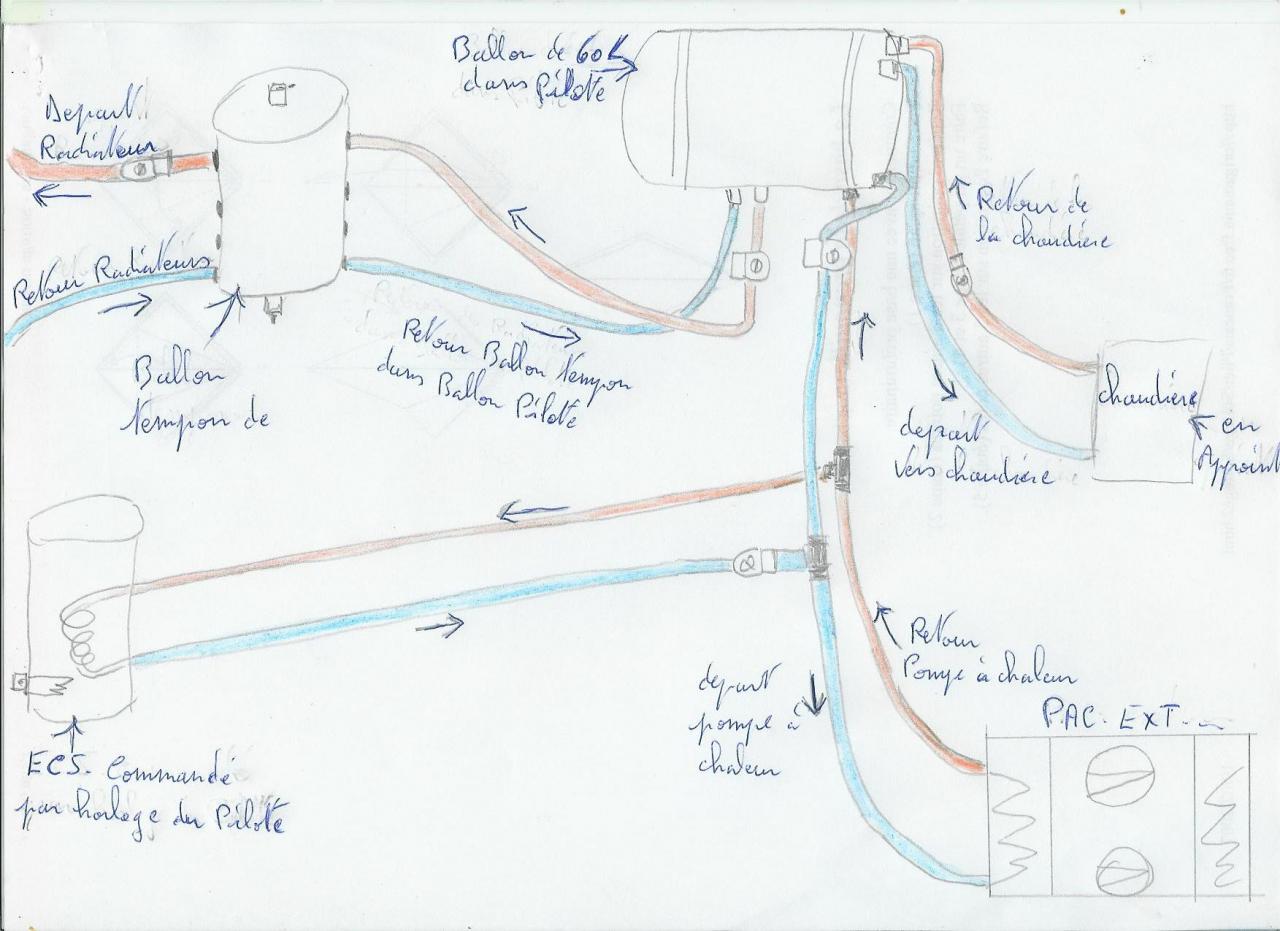 Ballon de 60L
dans Pilote
Depart
Radiateur
Retour Radiateurs
Retour de
la chaudière
Retour Ballon tempon
dans Ballon Pilote
Ballon
tempon de
chaudière
en
Appoint
depart
vers chaudière
Retour
Pompe à chaleur
depart
pompe à
chaleur
P.AC. EXT.
ECS. Commandé
par horloge du Pilote